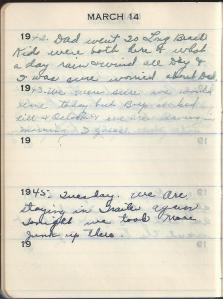 MARCH 14
1942. Dad went to Long Beach
Kids were both here & what
a day rain & wind all day &
I was sure worried about Dad.
1943. We were sure we would
today but Boys worked
till 4 o'clock & we are leaving in
morning I guess
19
1945 Tuesday. we are
staying in Trailer again
tonight we took more
junk up there.
19